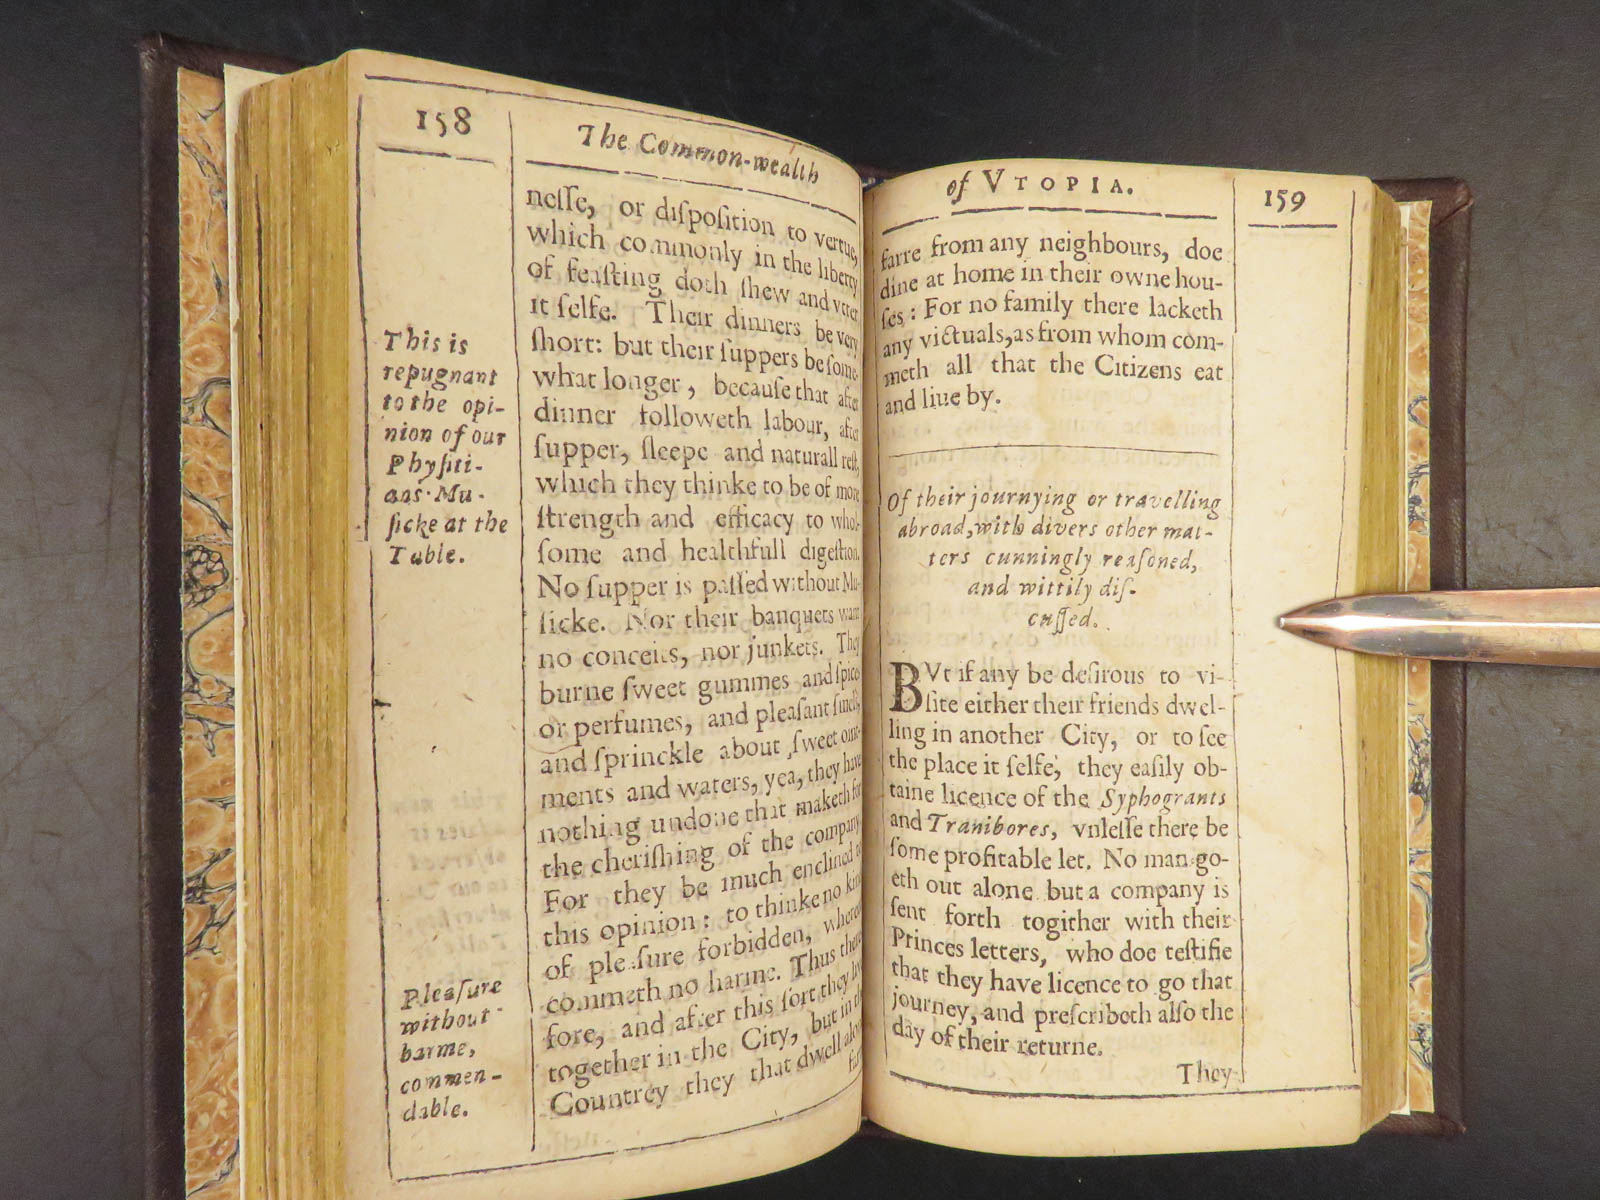 158
The Common-wealth
neſſe, or diſpoſition to vertue,
which commonly in the liberty
of feaſting doth ſhew and vtter
it ſelfe. Their dinners be very
ſhort: but their ſuppers be ſome-
what longer, becauſe that after
dinner followeth labour, after
ſupper, ſleepe and naturall reſt,
which they thinke to be of more
ſtrength and efficacy to whol-
ſome and healthfull digeſtion.
No ſupper is paſſed without Mu-
ſicke. Nor their banquets want
no conceits, nor junkets. They
burne ſweet gummes and ſpices
or perfumes, and pleaſant ſmels,
and ſprinckle about ſweet oint-
ments and waters, yea, they have
nothing undone that maketh for
the cheriſhing of the company.
For they be much enclined to
this opinion: to thinke no kind
of pleaſure forbidden, whereof
commeth no harme. Thus there-
fore, and after this ſort they live
together in the City, but in the
Countrey they that dwell alone
This is
repugnant
to the opi-
nion of our
Phyſiti-
ans. Mu-
ſicke at the
Table.
Pleaſure
without
harme,
commen-
dable.
of VTOPIA.
159
farre from any neighbours, doe
dine at home in their owne hou-
ſes: For no family there lacketh
any victuals, as from whom com-
meth all that the Citizens eat
and liue by.
Of their journying or travelling
abroad, with divers other mat-
ters cunningly reaſoned,
and wittily diſ-
cuſſed.
BVt if any be deſirous to vi-
ſite either their friends dwel-
ling in another City, or to ſee
the place it ſelfe, they eaſily ob-
taine licence of the Syphogrants
and Tranibores, vnleſſe there be
ſome profitable let. No man go-
eth out alone but a company is
ſent forth togither with their
Princes letters, who doe teſtifie
that they have licence to go that
journey, and preſcribeth alſo the
day of their returne.
They